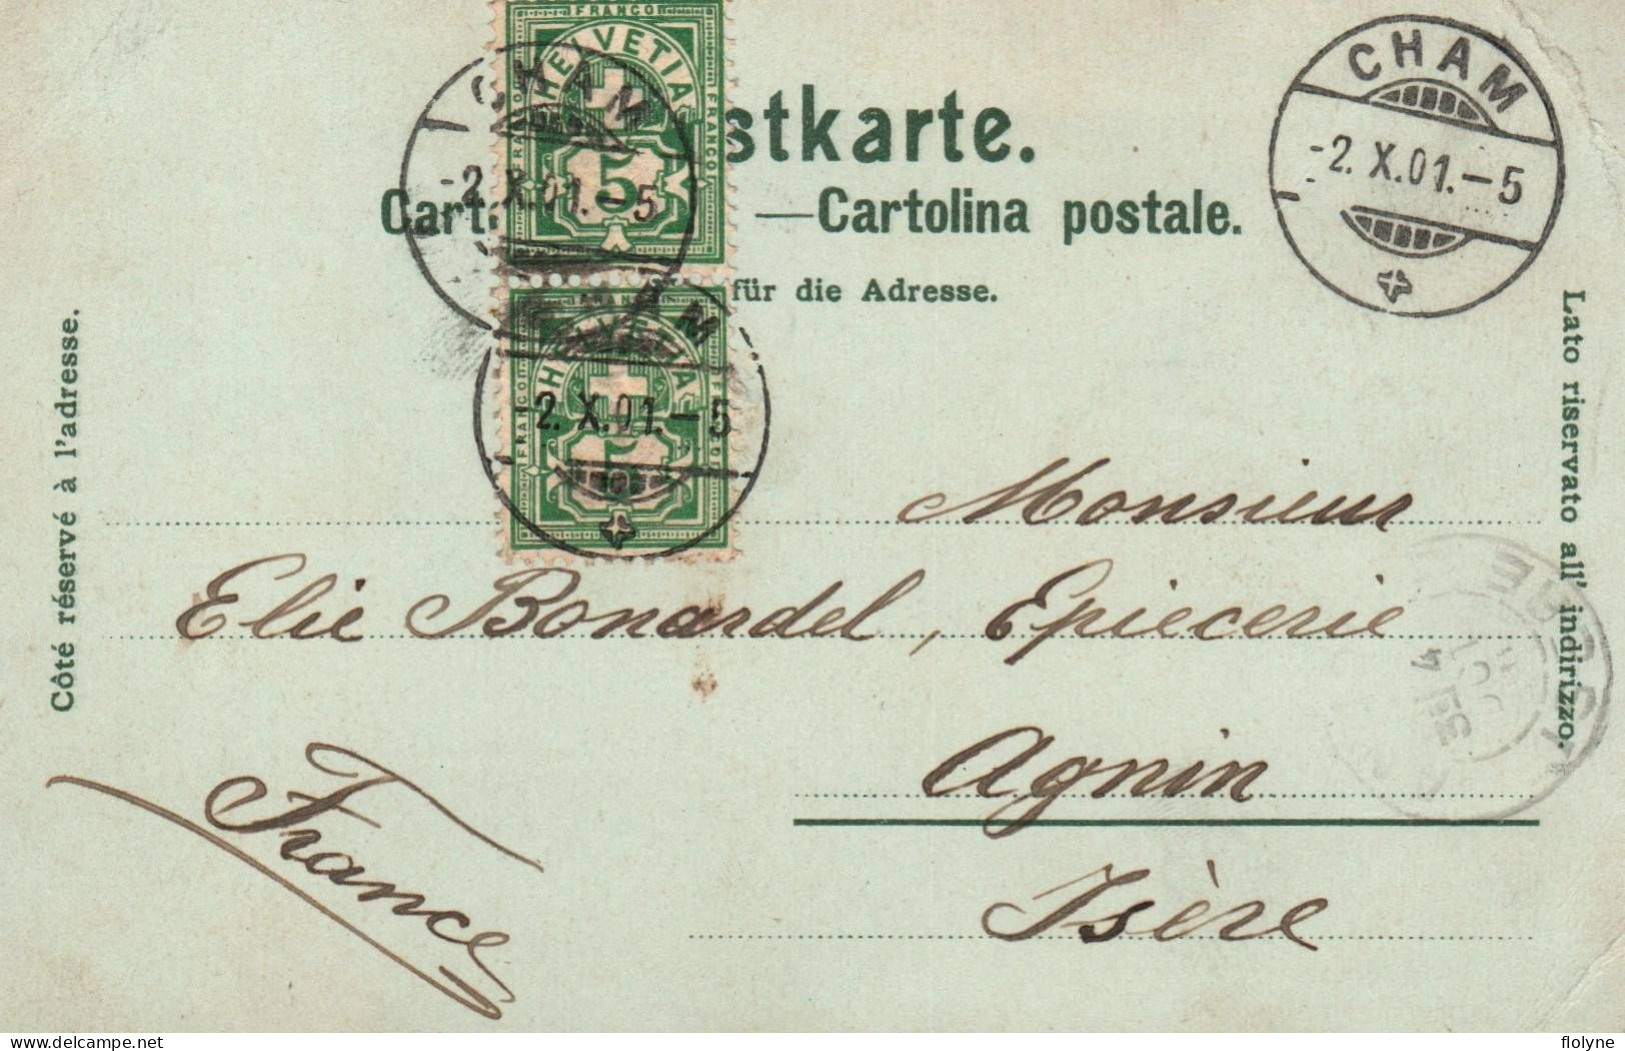 FRANCO
HELVETIA
FRANCO
FRANCO
5
CHAM
-2.X.01.-5
CHAM
-2.X.01.-5
stkarte.
Cart
—Cartolina postale.
für die Adresse.
FRANCO
HELVETIA
FRANCO
5
AM
2.X.01.-5
Côté réservé à l'adresse.
Lato riservato all' indirizzo.
Monsieur
Elie Bonardel, Epiecerie
Agnin
Isère
France
flolyne